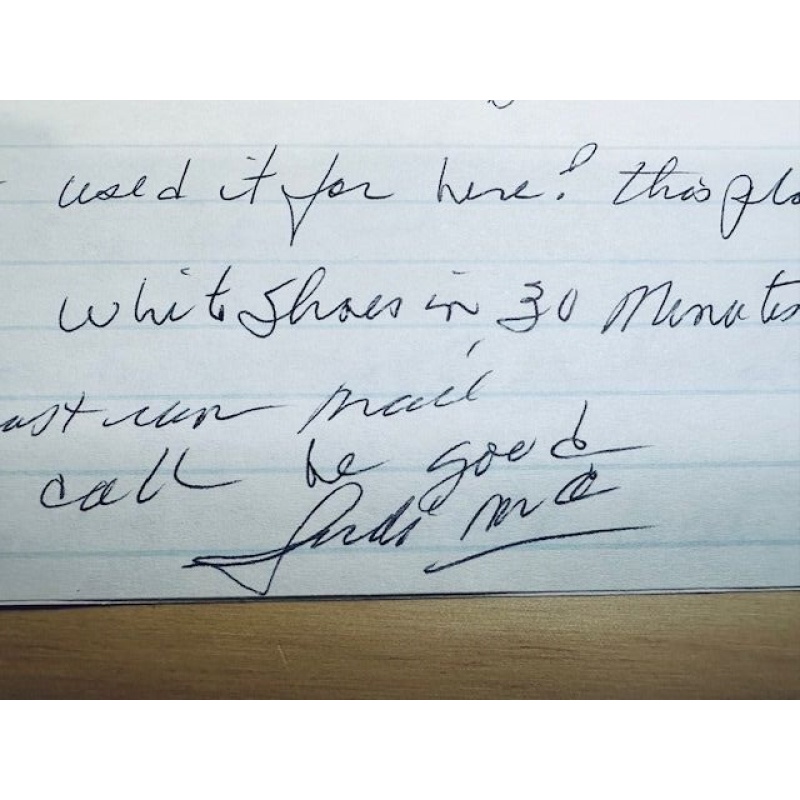 used it for here? this pla
white shoes in 30 Minutes
ast run mail
call be good